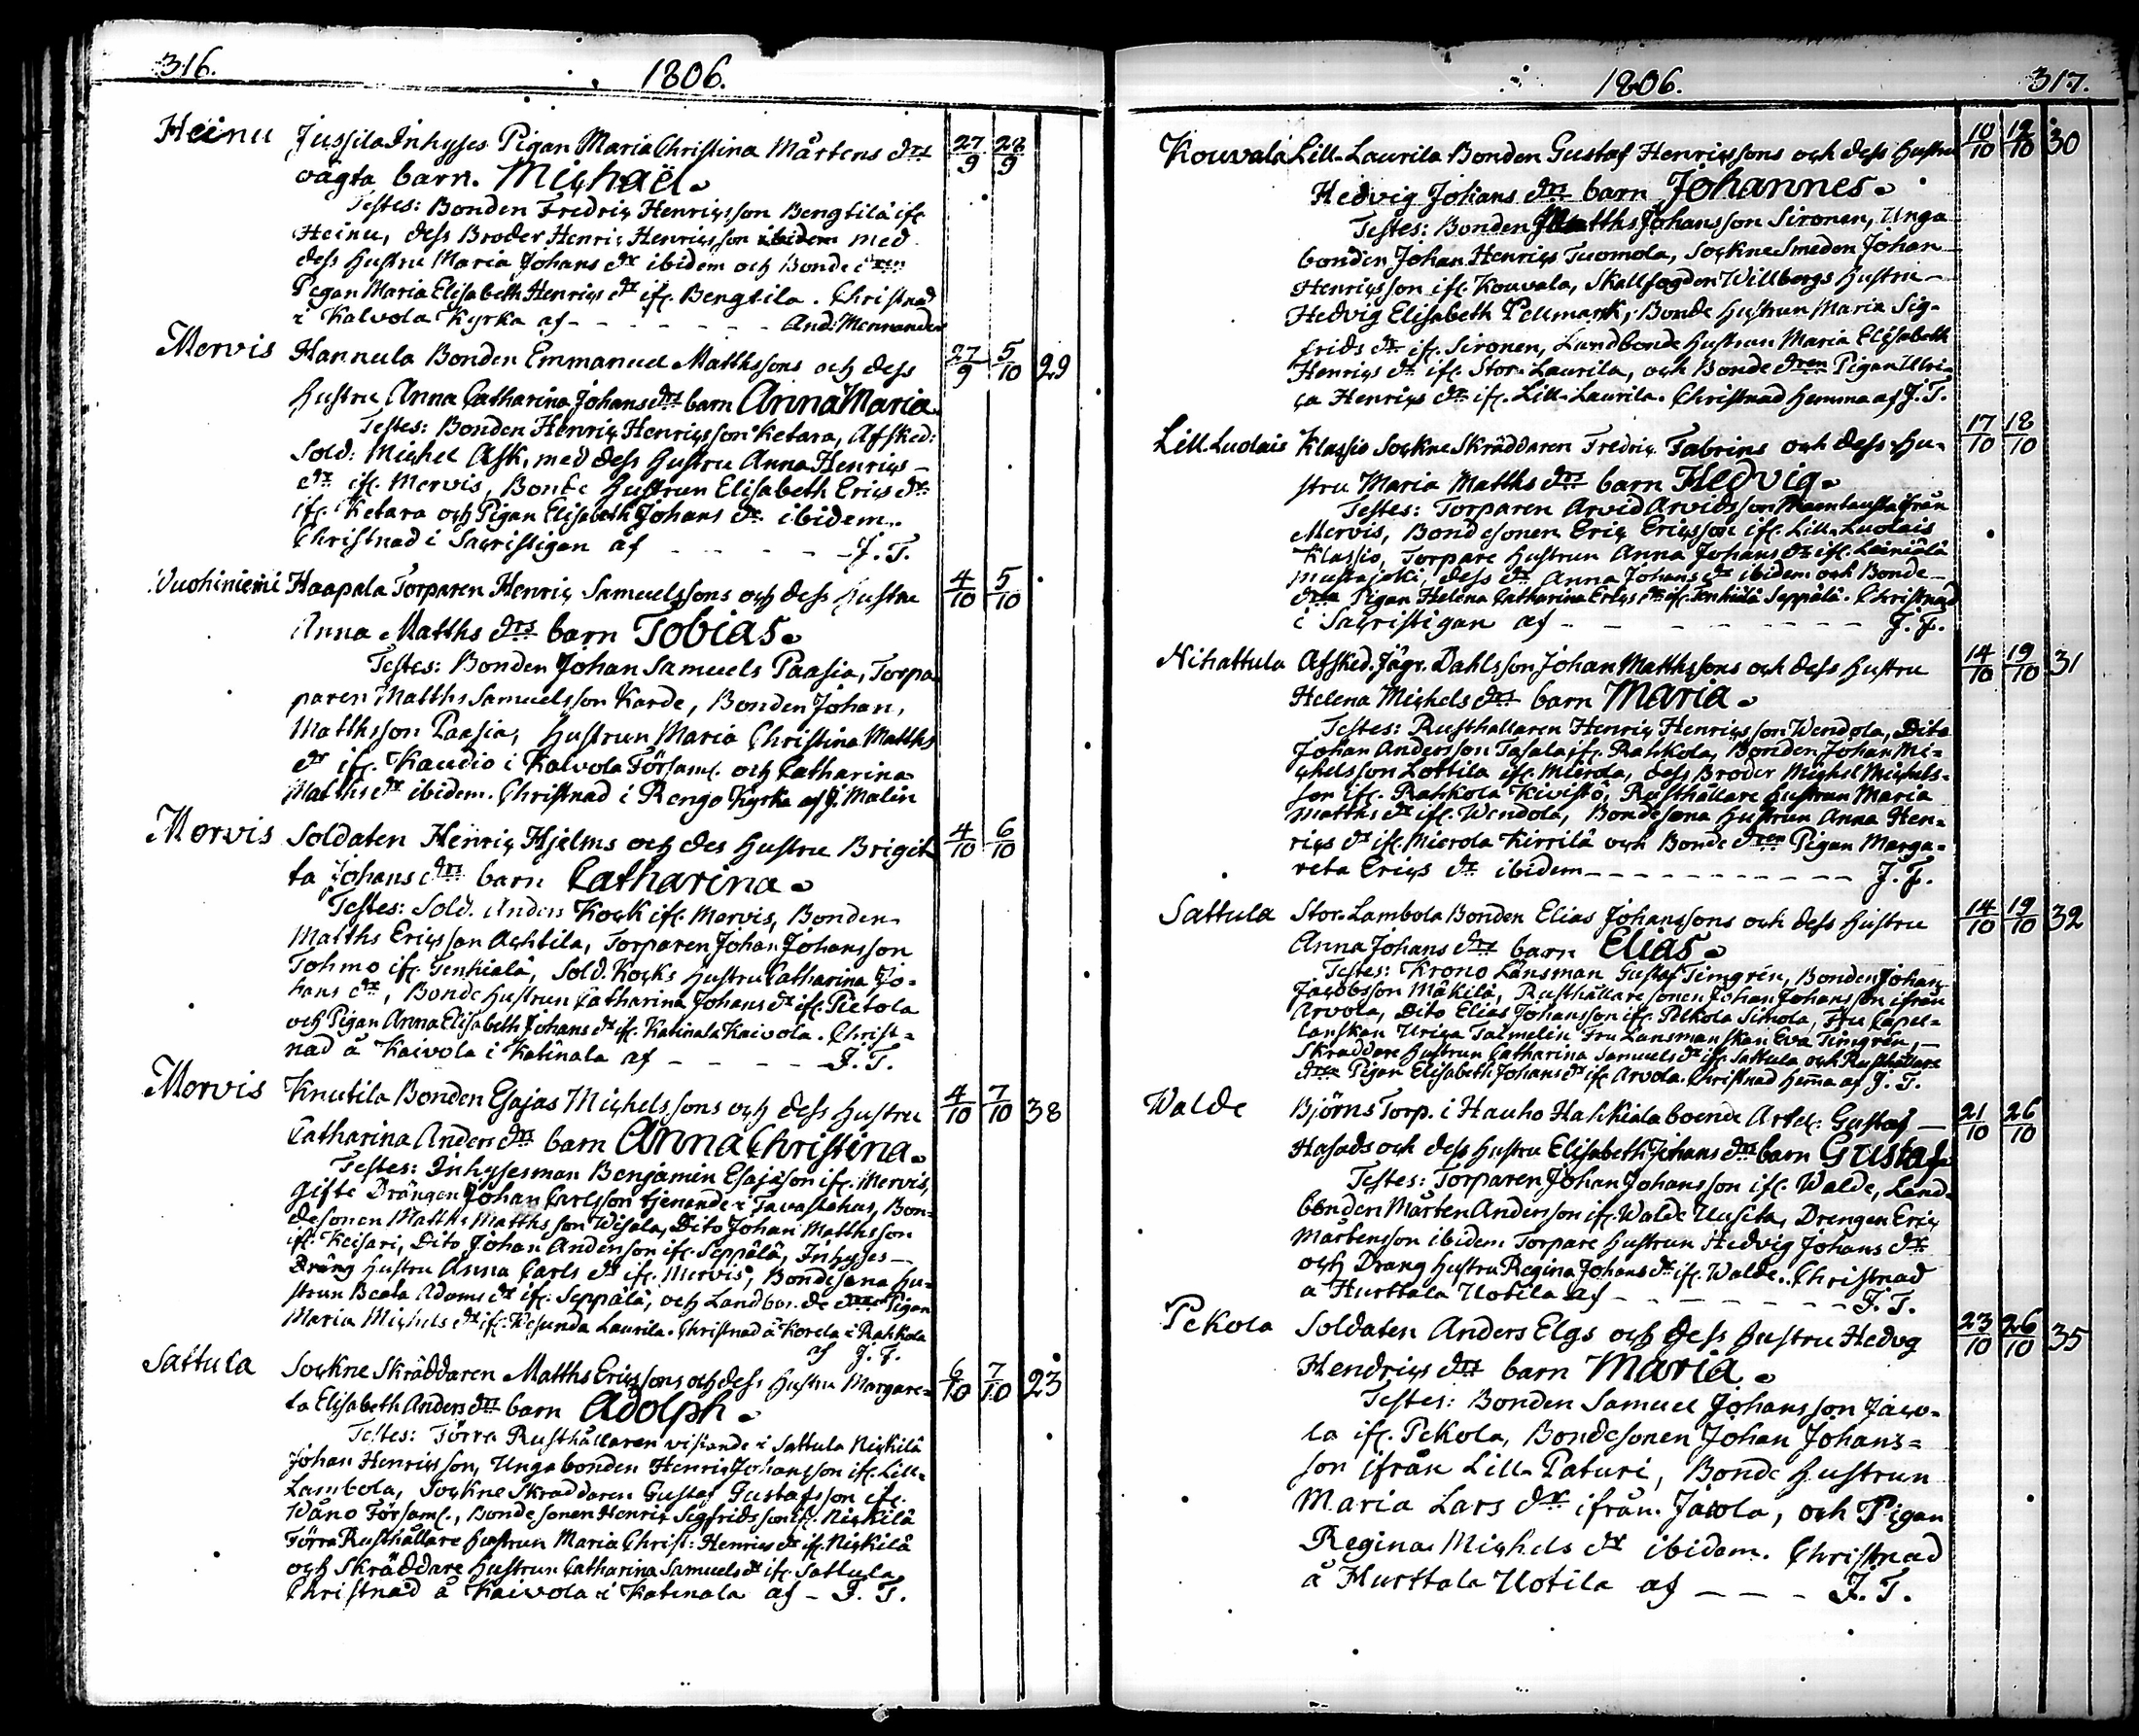 316.
1806.
Heinu Jussila Inhyses Pigan Maria Christina Mårtens drs 27/9 28/9
vägta barn. Michaël.
Testes: Bonden Fredric Henricsson Bengtilä ifr.
Heinu, dess Broder Henric Henricsson ibidem med
dess hustru Maria Johans dr ibidem och Bonde dren
Pigan Maria Elisabeth Henrics dr ifr. Bengtila. Christnad
i Kalvola Kyrka af - - - - - - - And: Mennander
Mervis Hannula Bonden Emmanuel Matthssons och dess 27/9 5/10 29
hustru Anna Catharina Johans drs barn Anna Maria.
Testes: Bonden Henric Henricsson Ketara, Afsked:
Sold: Michel Ask, med dess hustru Anna Henrics -
dr ifr. Mervis, Bonde hustrun Elisabeth Erics dr
ifr. Ketara och Pigan Elisabeth Johans dr ibidem.
Christnad i Sacristigan af - - - - - J. T.
Vuohiniemi Haapala Torparen Henric Samuelssons och dess hustru 4/10 5/10
Anna Matths drs barn Tobias.
Testes: Bonden Johan Samuels Paasia, Torpa
paren Matths Samuelsson Karde, Bonden Johan,
Matthsson Paasia, hustrun Maria Christina Matths
dr ifr. Kaudio i Kalvola Församl. och Catharina
Matths dr ibidem. Christnad i Rengo Kyrka af J. Malin
Mervis Soldaten Henric Hjelms och des hustru Brigit 4/10 6/10
ta Johans drs barn Catharina.
Testes: Sold. Anders Kock ifr. Mervis, Bonden
Matths Ericsson Achtila, Torparen Johan Johansson
Tohmo ifr. Tenhiala, Sold. Kocks hustru Catharina Jo=
hans dr, Bonde hustrun Catharina Johans dr ifr. Pietola
och Pigan Anna Elisabeth Johans dr ifr. Katinala Kaivola. Christ=
nad å Kaivola i Katinala af - - - - - J. T.
Mervis Knutila Bonden Esajas Michelssons och dess hustru 4/10 7/10 38
Catharina Anders drs barn Anna Christina.
Testes: Inhysesman Benjamin Esajæson ifr. Mervis,
gifte Drängen Johan Carlsson tjenande i Tavastehus, Bon=
desonen Matths Matthsson Wisala, Dito Johan Matthsson
ifr. Keisari, Dito Johan Andersson ifr. Seppälä, Inhyses -
Dräng hustru Anna Carls dr ifr. Mervis, Bondesona hu=
strun Beata Adams dr ifr. Seppälä, och Landbonde dren Pigan
Maria Michels dr ifr. Wesunda Laurila. Christnad å Korela i Rahkola
af J. T.
Sattula Sockne Skräddaren Matths Ericssons och dess hustru Margare= 6/10 7/10 23
ta Elisabeth Anders drs barn Adolph.
Testes: Förra Rusthållaren vistande i Sattula Nickilä
Johan Henricsson, Unga bonden Henric Johansson ifr. Lill=
Lambola, Sockne Skräddaren Gustaf Gustafsson ifr.
Wåno Församl., Bondesonen Henric Sigfridsson ifr. Nickilä
Förra Rusthållare hustrun Maria Christ: Henrics dr ifr. Nickilä
och Skräddare hustrun Catharina Samuels dr ifr. Sattula.
Christnad å Kaivola i Katinala af - J. T.
1806.
317.
Kouvala Lill-Laurila Bonden Gustaf Henricssons och dess hustru 10/10 12/10 30
Hedvig Johans drs barn Johannes.
Testes: Bonden Matths Johansson Sironen, Unga
bonden Johan Henrics Tuomola, Sockne Smeden Johan
Henricsson ifr. Kouvala, Skallfogden Willbergs hustru -
Hedvig Elisabeth Pellmark, Bonde hustrun Maria Sig=
frids dr ifr. Sironen, Landbonde hustrun Maria Elisabeth
Henrics dr ifr. Stor-Laurila, och Bonde dren Pigan Ulri=
ca Henrics dr ifr. Lill-Laurila. Christnad hemma af J. T.
Lill-Luolais Klassio Sockne Skräddaren Fredric Fabrins och dess hu= 17/10 18/10
stru Maria Matths drs barn Hedvig.
Testes: Torparen Arvid Arvidsson från
Mervis, Bondesonen Eric Ericsson ifr. Lill-Luolais
Klassio, Torpare hustrun Anna Johans dr ifr. Leiniälä
Mustajoki, dess dr Anna Johans dr ibidem och Bonde
dren Pigan Helena Catharina Erics dr ifr. Tenhiälä Seppälä. Christnad
i Sacristigan af - - - - - - J. T.
Nihattula Afsked. Jägr. Dahlsson Johan Matthssons och dess hustru 14/10 19/10 31
Helena Michels drs barn Maria.
Testes: Rusthållaren Henric Henricsson Wendola, Dito
Johan Andersson Tasala ifr. Rahkola, Bonden Johan Mi=
chelsson Lottila ifr. Mierola, dess Broder Michel Michels=
son ifr. Rahkola Kivistö, Rusthållare hustrun Maria
Matths dr ifr. Wendola, Bondesona hustrun Anna Hen=
rics dr ifr. Mierola Kirrilä och Bonde dren Pigan Marga=
reta Erics dr ibidem - - - - - - - - - - J. T.
Sattula Stor-Lambola Bonden Elias Johanssons och dess hustru 14/10 19/10 32
Anna Johans drs barn Elias.
Testes: Krono Länsman Gustaf Timgrén, Bonden Johan
Jacobsson Mäkilä, Rusthållare sonen Johan Johansson ifrån
Arvola, Dito Elias Johansson ifr. Pelkola Simola, Fru Capel=
lanskan Ulrica Talmelin Fru Länsmanskan Eva Timgrén, -
Skräddare hustrun Catharina Samuels dr ifr. Sattula och Rusthållare
dren Pigan Elisabeth Johans dr ifr. Arvola. Christnad hemma af J. T.
Walde Björns Torp. i Hauho Hahkiala boende Artel: Gustaf - 21/10 26/10
Hasads och dess hustru Elisabeth Johans drs barn Gustaf.
Testes: Torparen Johan Johansson ifr. Walde, Land=
bonden Mårten Andersson ifr. Walde Uusita, Drengen Eric
Mårtensson ibidem Torpare hustrun Hedvig Johans dr
och Dräng hustru Regina Johans dr ifr. Walde. Christnad
å Hurttala Uotila af - - - - - - - J. T.
Pekola Soldaten Anders Elgs och dess hustru Hedvg 23/10 26/10 35
Hendrics drs barn Maria.
Testes: Bonden Samuel Johansson Jaco=
la ifr. Pekola, Bondesonen Johan Johans=
son ifrån Lill-Paturi, Bonde hustrun
Maria Lars dr ifrån. Jacola, och Pigan
Regina Michels dr ibidem. Christnad
å Hurttala Uotila af - - - - J. T.